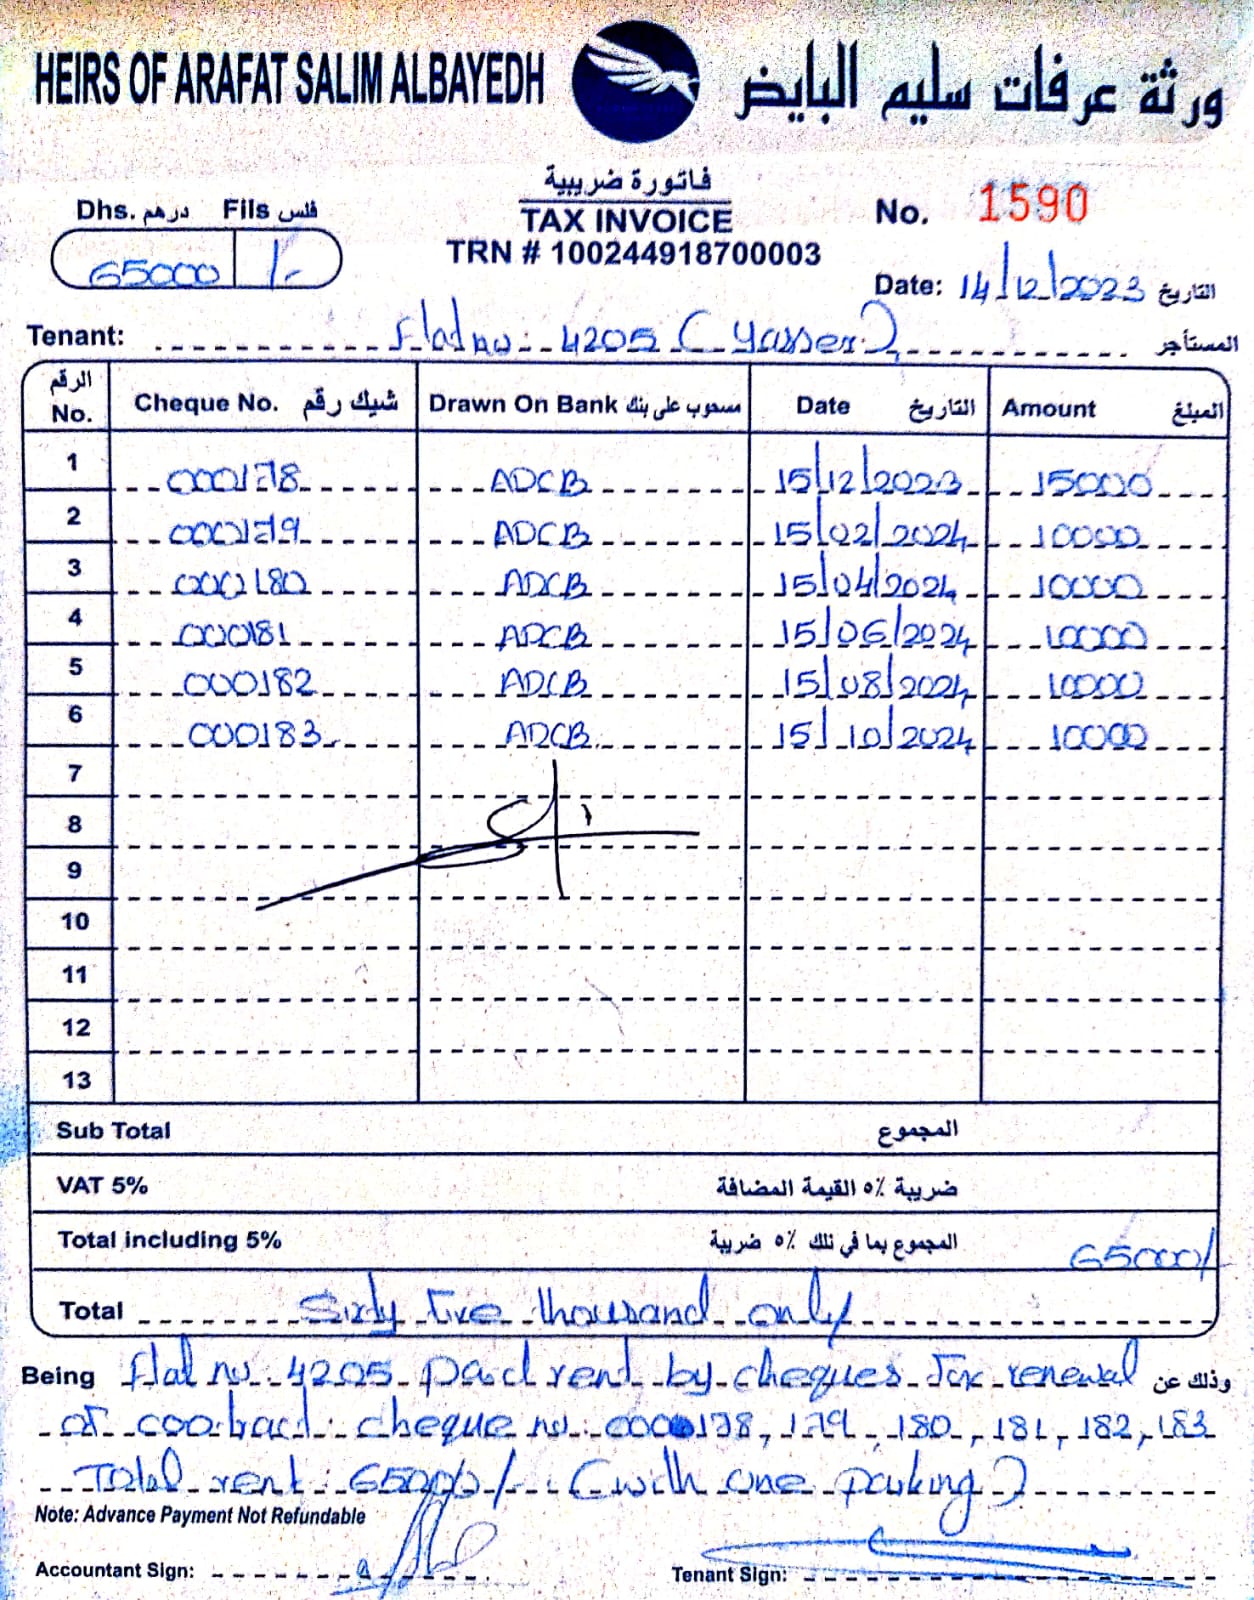 HEIRS OF ARAFAT SALIM ALBAYEDH ورثة عرفات سليم البايض
فاتورة ضريبية
TAX INVOICE
TRN # 100244918700003
Dhs. درهم Fils فلس
65000 /-
No. 1590
Date: 14/12/2023 التاريخ
Tenant: Flat no: 4205 (Yasser) المستأجر
الرقم No. Cheque No. شيك رقم Drawn On Bank مسحوب على بنك Date التاريخ Amount المبلغ
1 000178 ADCB 15/12/2023 15000
2 000179 ADCB 15/02/2024 10000
3 000180 ADCB 15/04/2024 10000
4 000181 ADCB 15/06/2024 10000
5 000182 ADCB 15/08/2024 10000
6 000183 ADCB 15/10/2024 10000
7
8
9
10
11
12
13
Sub Total المجموع
VAT 5% ضريبة ٥% القيمة المضافة
Total including 5% المجموع بما في ذلك ٥% ضريبة 65000/
Total Sixty Five thousand only
Being flat no: 4205 paid rent by cheques for renewal وذلك عن
of contract: cheque no: 000178, 179, 180, 181, 182, 183
Total rent: 65000/- (with one parking)
Note: Advance Payment Not Refundable
Accountant Sign: Tenant Sign: